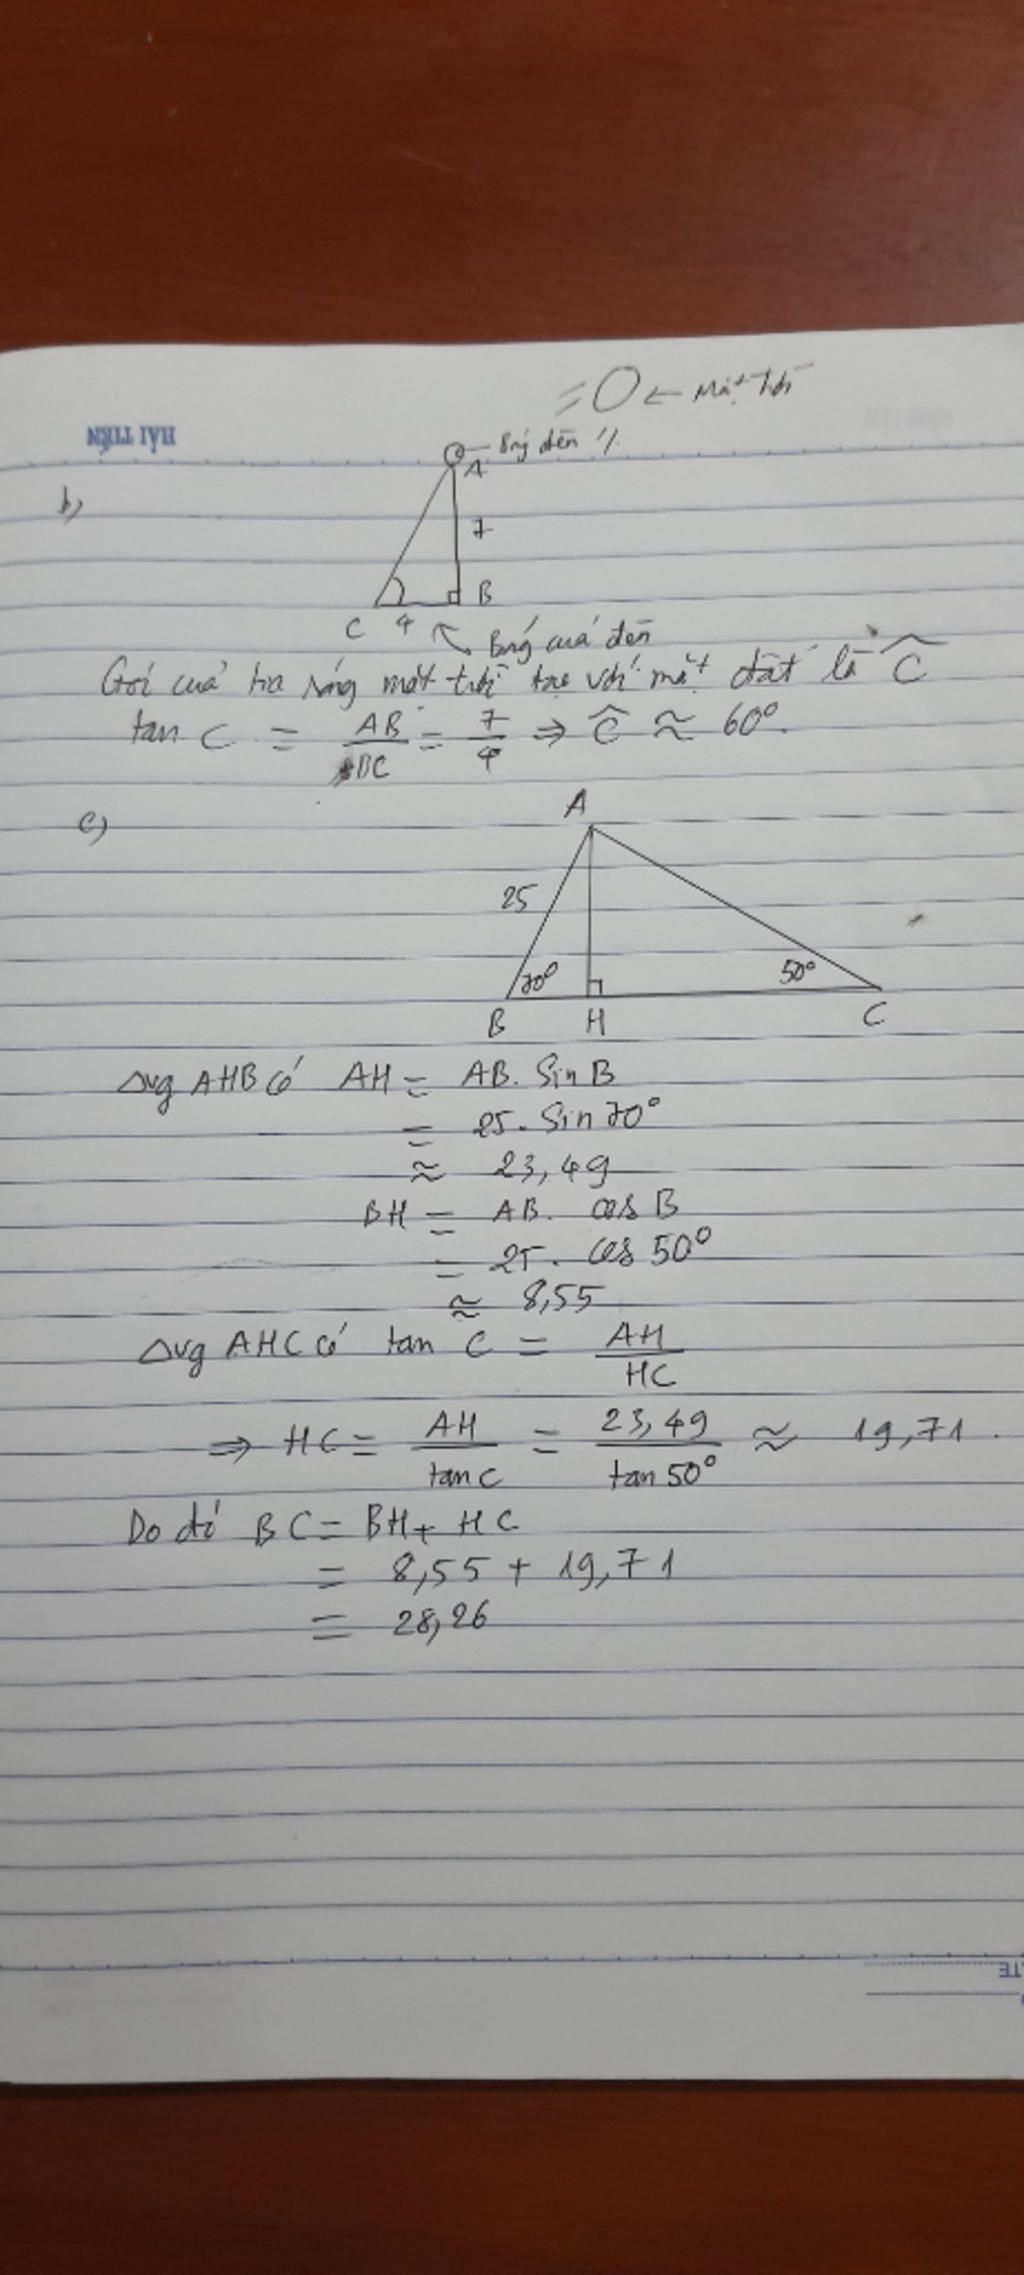 = O ← Mặt trời
HẢI TIẾN
Bóng đèn
A
b)
7
B
C 4
Bóng cuả đèn
Góc cuả tia nắng mặt trời tạo với mặt đất là Ĉ
tan C = AB/BC = 7/4 ⇒ Ĉ ≈ 60°.
c)
A
25
70° 50°
B H C
Δvg AHB có AH = AB. Sin B
= 25. Sin 70°
≈ 23,49
BH = AB. cos B
= 25. cos 50°
≈ 8,55
Δvg AHC có tan C = AH/HC
⇒ HC = AH/tan C = 23,49/tan 50° ≈ 19,71.
Do đó BC = BH + HC
= 8,55 + 19,71
= 28,26